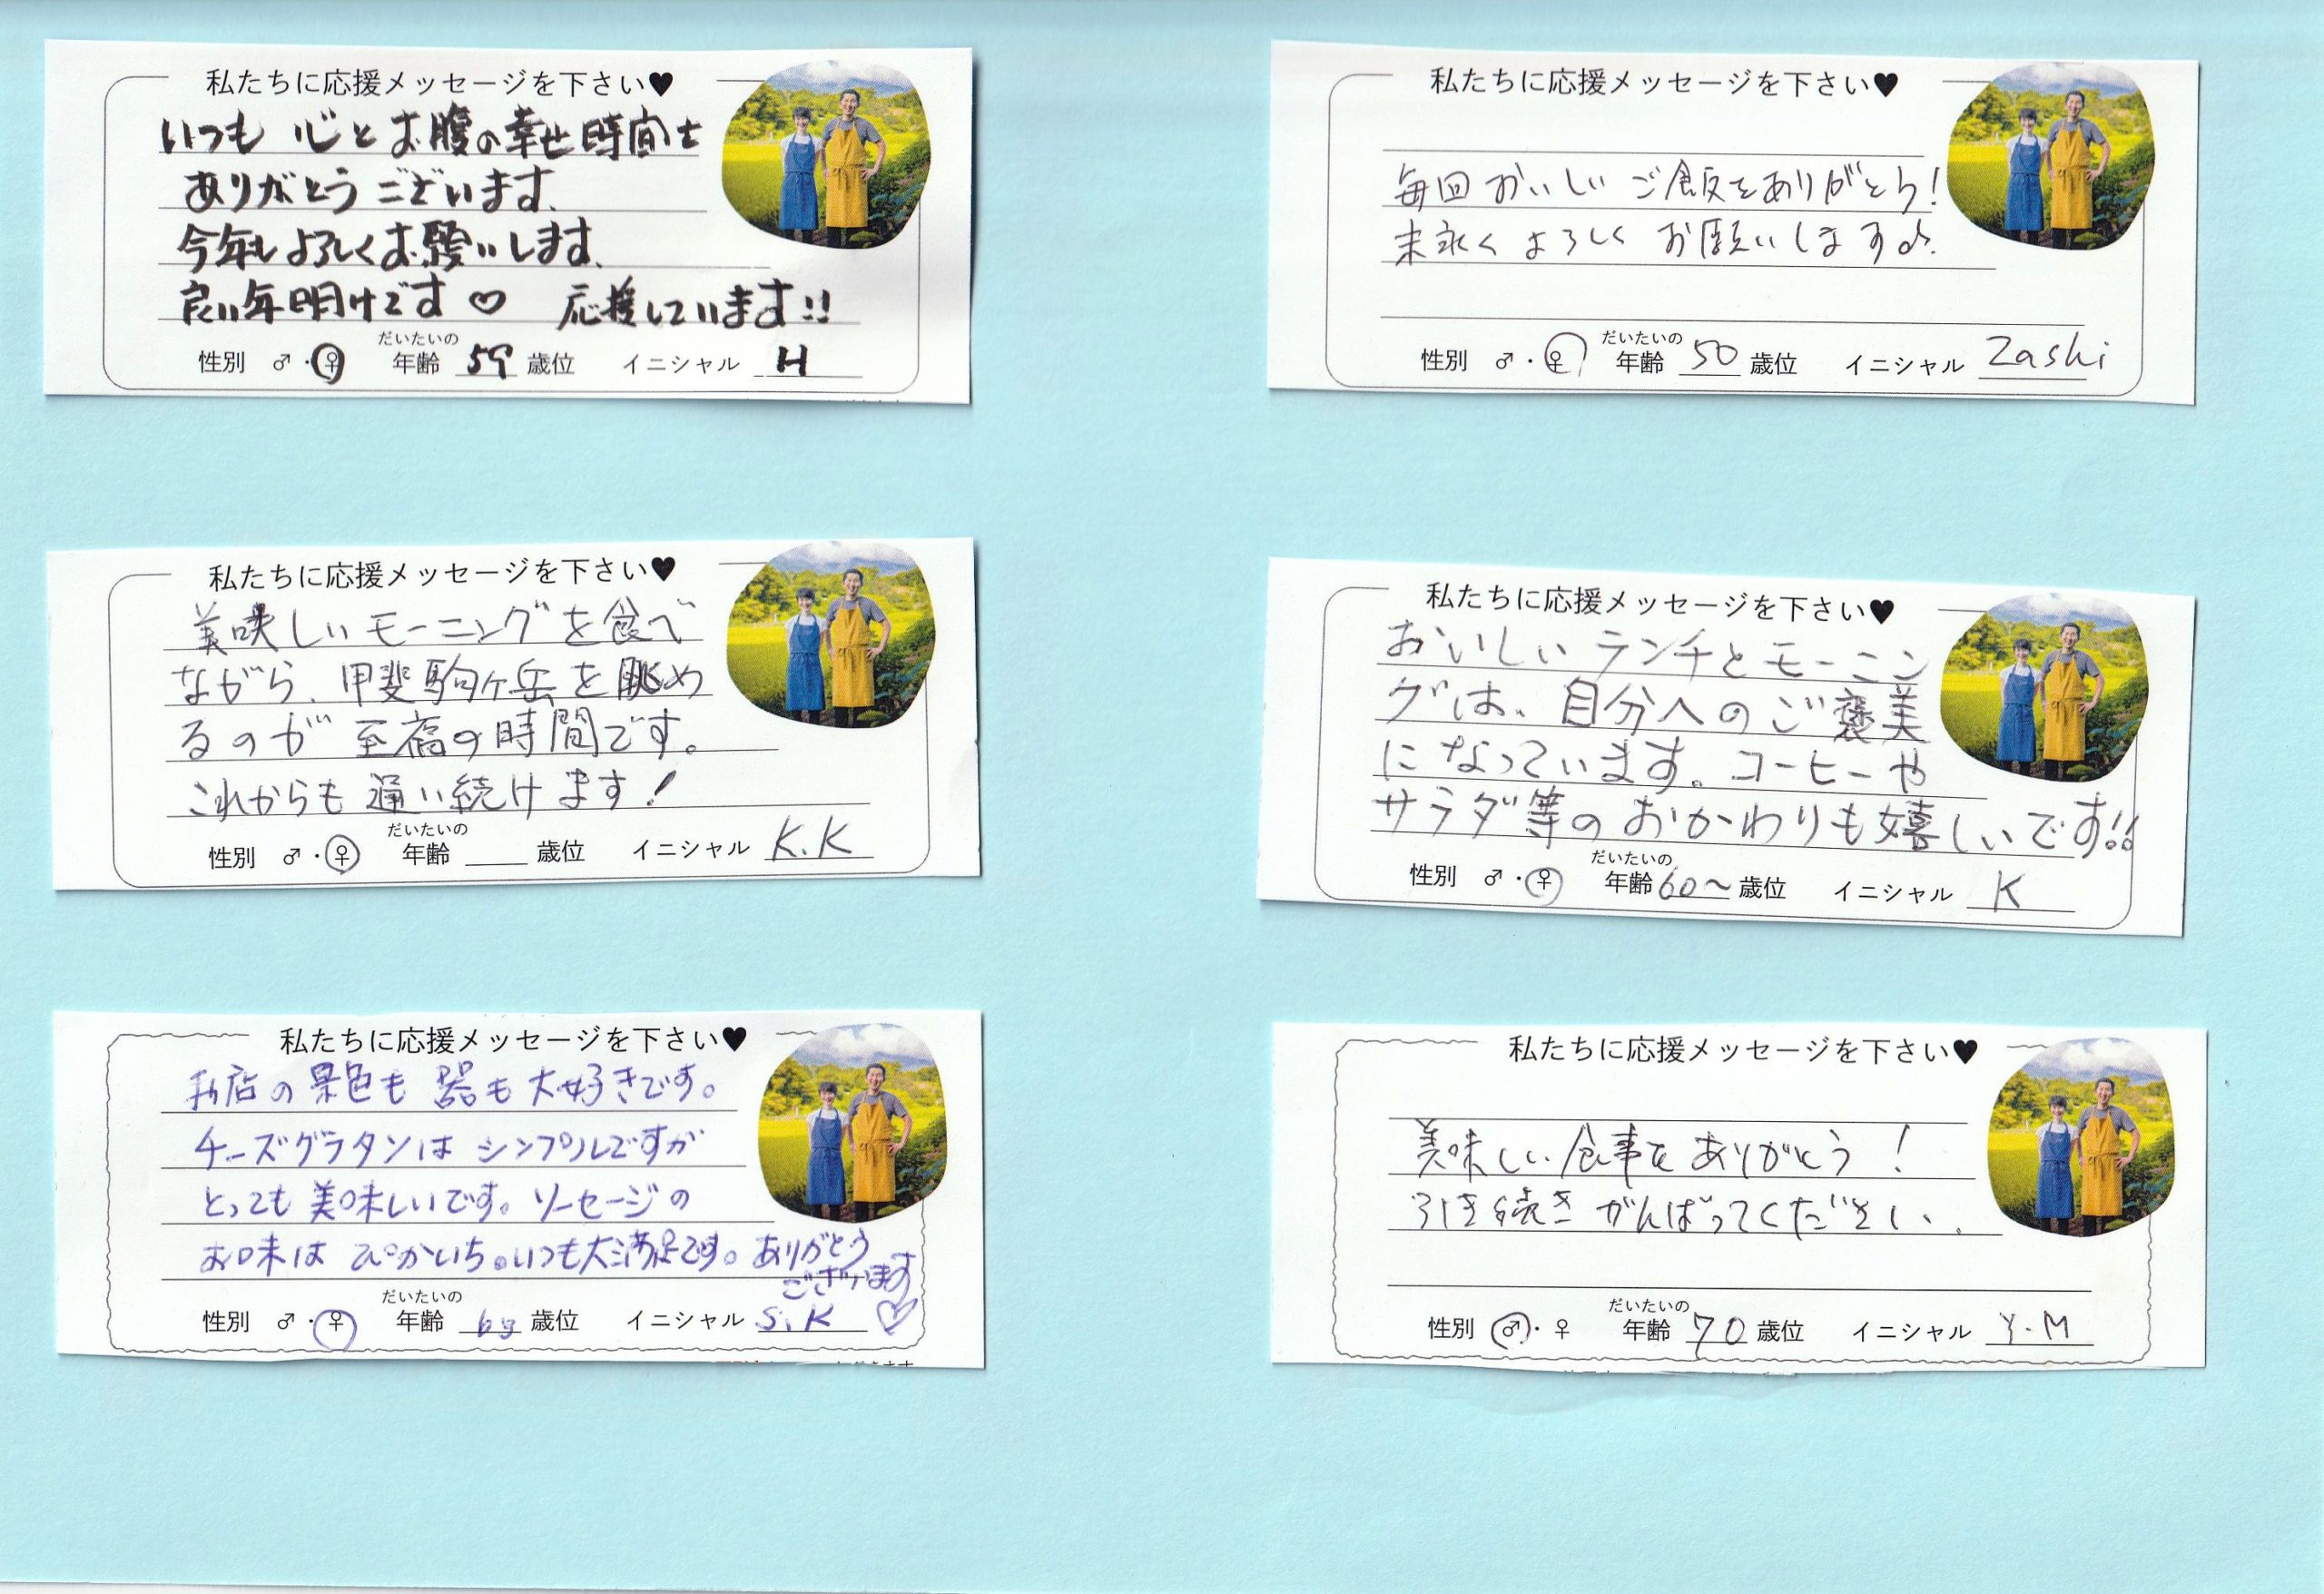 私たちに応援メッセージを下さい♥
いつも 心とお腹の幸せ時間を
ありがとうございます。
今年もよろしくお願いします。
良い年明けです♡ 応援しています!!
だいたいの
性別 ♂・♀ 年齢 59 歳位 イニシャル H
私たちに応援メッセージを下さい♥
毎回 おいしい ご飯をありがとう!
末永く よろしく お願いします♪
だいたいの
性別 ♂・♀ 年齢 50 歳位 イニシャル Zashi
私たちに応援メッセージを下さい♥
美味しいモーニングを食べ
ながら、甲斐駒ヶ岳を眺め
るのが 至福の時間です。
これからも 通い続けます!
だいたいの
性別 ♂・♀ 年齢 歳位 イニシャル K.K
私たちに応援メッセージを下さい♥
おいしい ランチと モーニン
グは、自分へのご褒美
になっています。コーヒーや
サラダ等のおかわりも嬉しいです!!
だいたいの
性別 ♂・♀ 年齢 60～ 歳位 イニシャル K
私たちに応援メッセージを下さい♥
お店の景色も 器も大好きです。
チーズグラタンは シンプルですが
とっても 美味しいです。ソーセージの
お味は ぴかいち。いつも大満足です。ありがとう
ございます
♡
だいたいの
性別 ♂・♀ 年齢 歳位 イニシャル S.K
私たちに応援メッセージを下さい♥
美味しい食事を ありがとう!
引き続き がんばってください。
だいたいの
性別 ♂・♀ 年齢 70 歳位 イニシャル Y.M